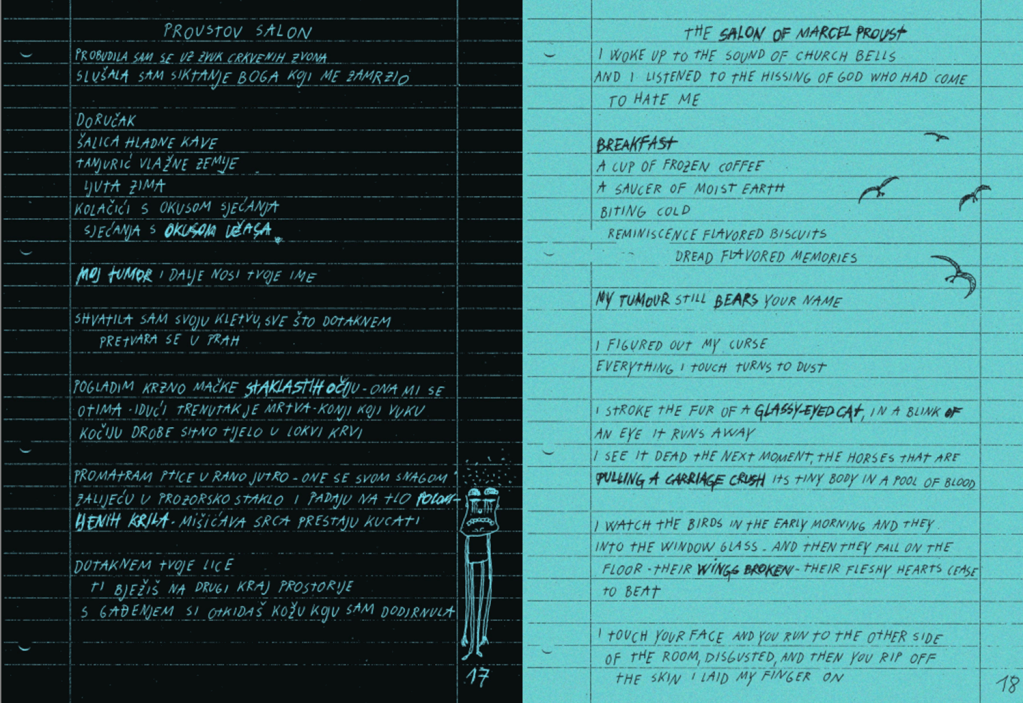 PROUSTOV SALON
PROBUDILA SAM SE UZ ZVUK CRKVENIH ZVONA
SLUŠALA SAM SIKTANJE BOGA KOJI ME ZAMRZIO
DORUČAK
ŠALICA HLADNE KAVE
TANJURIĆ VLAŽNE ZEMJE
LJUTA ZIMA
KOLAČIĆI S OKUSOM SJEĆANJA
SJEĆANJA S OKUSOM UŽASA
MOJ TUMOR I DALJE NOSI TVOJE IME
SHVATILA SAM SVOJU KLETVU, SVE ŠTO DOTAKNEM
PRETVARA SE U PRAH
POGLADIM KRZNO MAČKE STAKLASTIH OČIJU - ONA MI SE
OTIMA - IDUĆI TRENUTAK JE MRTVA - KONJI KOJI VUKU
KOČIJU DROBE SITNO TIJELO U LOKVI KRVI
PROMATRAM PTICE U RANO JUTRO - ONE SE SVOM SNAGOM
ZALIJEĆU U PROZORSKO STAKLO I PADAJU NA TLO POLOM-
LJENIH KRILA - MIŠIĆAVA SRCA PRESTAJU KUCATI
DOTAKNEM TVOJE LICE
TI BJEŽIŠ NA DRUGI KRAJ PROSTORIJE
S GAĐENJEM SI OTKIDAŠ KOŽU KOJU SAM DODIRNULA
17
THE SALON OF MARCEL PROUST
I WOKE UP TO THE SOUND OF CHURCH BELLS
AND I LISTENED TO THE HISSING OF GOD WHO HAD COME
TO HATE ME
BREAKFAST
A CUP OF FROZEN COFFEE
A SAUCER OF MOIST EARTH
BITING COLD
REMINISCENCE FLAVORED BISCUITS
DREAD FLAVORED MEMORIES
MY TUMOUR STILL BEARS YOUR NAME
I FIGURED OUT MY CURSE
EVERYTHING I TOUCH TURNS TO DUST
I STROKE THE FUR OF A GLASSY-EYED CAT, IN A BLINK OF
AN EYE IT RUNS AWAY
I SEE IT DEAD THE NEXT MOMENT, THE HORSES THAT ARE
PULLING A CARRIAGE CRUSH ITS TINY BODY IN A POOL OF BLOOD
I WATCH THE BIRDS IN THE EARLY MORNING AND THEY
INTO THE WINDOW GLASS - AND THEN THEY FALL ON THE
FLOOR - THEIR WINGS BROKEN - THEIR FLESHY HEARTS CEASE
TO BEAT
I TOUCH YOUR FACE AND YOU RUN TO THE OTHER SIDE
OF THE ROOM, DISGUSTED, AND THEN YOU RIP OFF
THE SKIN I LAID MY FINGER ON
18